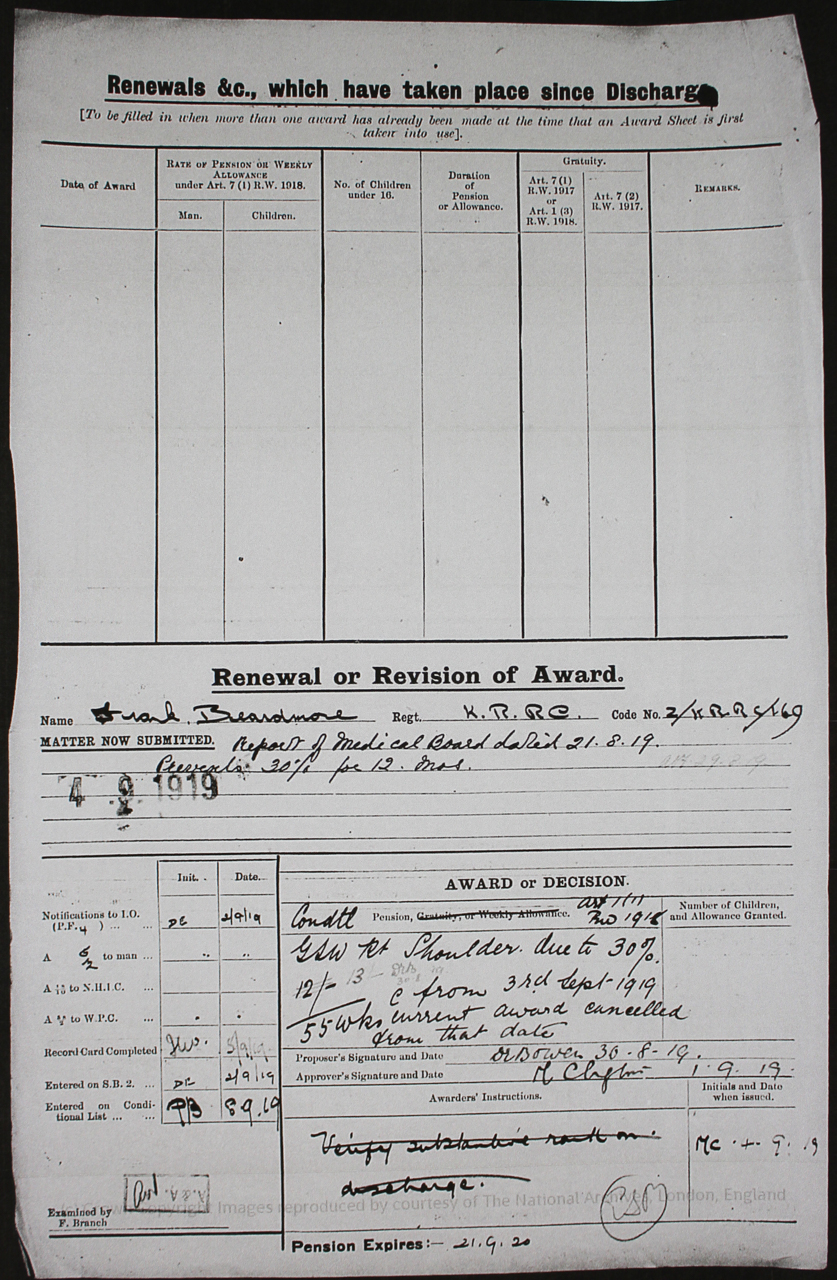 Renewals &c., which have taken place since Discharge
[To be filled in when more than one award has already been made at the time that an Award Sheet is first
taken into use].
Date of Award
RATE OF PENSION OR WEEKLY
ALLOWANCE
under Art. 7 (1) R.W. 1918.
Man.
Children.
No. of Children
under 16.
Duration
of
Pension
or Allowance.
Gratuity.
Art. 7 (1)
R.W. 1917
or
Art. 1 (3)
R.W. 1918.
Art. 7 (2)
R.W. 1917.
REMARKS.
Renewal or Revision of Award.
Name Frank Beardmore Regt. K.R.RC. Code No. 2/KRRC/169
MATTER NOW SUBMITTED. Report of Medical Board dated 21.8.19.
30% for 12 Mos.
4 9 1919
Init.
Date.
Notifications to I.O.
(P.F.4 ) ... ...
DE
2/9/19
A to man ...
A to N.H.I.C. ...
A to W.P.C. ...
Record Card Completed
Entered on S.B. 2. ...
DE
2/9/19
Entered on Condi-
tional List ... ...
PB
8 9.19
Examined by
F. Branch
AWARD or DECISION.
Condtl Pension, Gratuity, or Weekly Allowance.
1918
Number of Children,
and Allowance Granted.
GSW Rt Shoulder. due to 30%.
12/- 13/-
c from 3rd Sept 1919
55 wks current award cancelled
from that date
Proposer's Signature and Date DBowen 30-8-19.
Approver's Signature and Date 1.9.19.
Awarders' Instructions.
Initials and Date
when issued.
Verify substantive rank on
discharge.
MC 4.9.19
Images reproduced by courtesy of The National Archives, London, England
Pension Expires:- 21.9.20